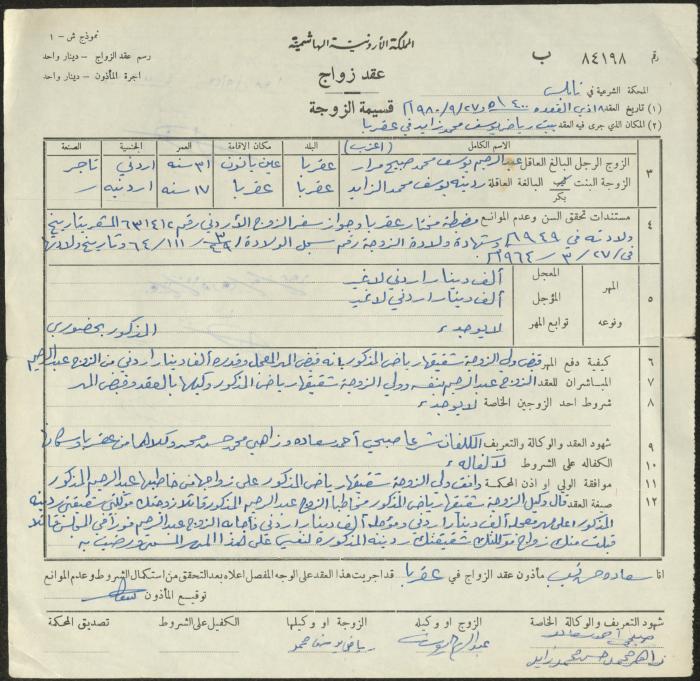 نموذج ش - ١
المملكة الأردنية الهاشمية
رقم ٨٤١٩٨ ب
رسم عقد الزواج - دينار واحد
اجرة المأذون - دينار واحد
عقد زواج
المحكمة الشرعية في نابلس
قسيمة الزوجة
(١) تاريخ العقد ١٨ ذي القعده ١٤٠٠ هـ و ٢٧/٩/١٩٨٠
(٢) المكان الذي جرى فيه العقد بيت رياض يوسف محمد زايد في عقربا
الاسم الكامل (اعزب) البلد مكان الاقامة العمر الجنسية الصنعة
٣ الزوج الرجل البالغ العاقل عبدالرحيم يوسف محمد صبيح مرار عقربا عين يانون ٣١ سنه اردني تاجر
الزوجة البنت بكر البالغة العاقلة ردينه يوسف محمد الزايد عقربا عقربا ١٧ سنه اردنيه
٤ مستندات تحقق السن وعدم الموانع مضبطة مختار عقربا وجواز سفر الزوج الأردني رقم ٦٣١٤١٢ بتاريخ
ولادته في ١٩٤٩ وشهادة ولادة الزوجة رقم سجل الولادة ٦٤/١١١ وتاريخ ولادتها
في ٢٧/٣/١٩٦٤
٥ المهر ونوعه
المعجل ألف دينار اردني لاغير
المؤجل ألف دينار اردني لاغير
توابع المهر لا يوجد المذكور بحضوري
٦ كيفية دفع المهر قبض ولي الزوجة شقيقها رياض المذكور بانه قبض المهر المعجل وقدره ألف دينار اردني من الزوج عبدالرحيم
٧ المباشران للعقد الزوج عبدالرحيم بنفسه وولي الزوجة شقيقها رياض المذكور وكيلها بالعقد وقبض المهر
٨ شروط احد الزوجين الخاصة لا يوجد
٩ شهود العقد والوكالة والتعريف المكلفان شرعا صبحي أحمد سعاده وزاهي محمد حسن محمد وكلاهما من عقربا وسكانها
١٠ الكفاله على الشروط لا كفاله
١١ موافقة الولي او اذن المحكمة وافق ولي الزوجة شقيقها رياض المذكور على زواجها من خاطبها عبدالرحيم المذكور
١٢ صيغة العقد قال وكيل الزوجة شقيقها رياض المذكور مخاطبا الزوج عبدالرحيم المذكور قائلا زوجتك موكلتي شقيقتي ردينه
المذكوره على مهر معجله ألف دينار اردني ومؤجله ألف دينار اردني فأجابه الزوج عبدالرحيم فورا في المجلس قائلا
قبلت منك زواج موكلتك شقيقتك ردينه المذكورة لنفسي على هذا المهر المسمى ورضيت به
انا سعاده مأذون عقد الزواج في عقربا قد اجريت هذا العقد على الوجه المفصل اعلاه بعد التحقق من استكمال الشروط وعدم الموانع
توقيع المأذون
شهود التعريف والوكالة الخاصة الزوج او وكيله الزوجة او وكيلها الكفيل على الشروط تصديق المحكمة
صبحي احمد سعاده عبدالرحيم يوسف رياض يوسف محمد
محمد حسن محمد زايد